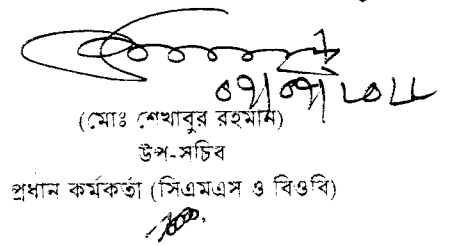 ০৭/০৭/২০২২
(মোঃ শেখাবুর রহমান)
উপ-সচিব
প্রধান কর্মকর্তা (সিএমএস ও বিওবি)